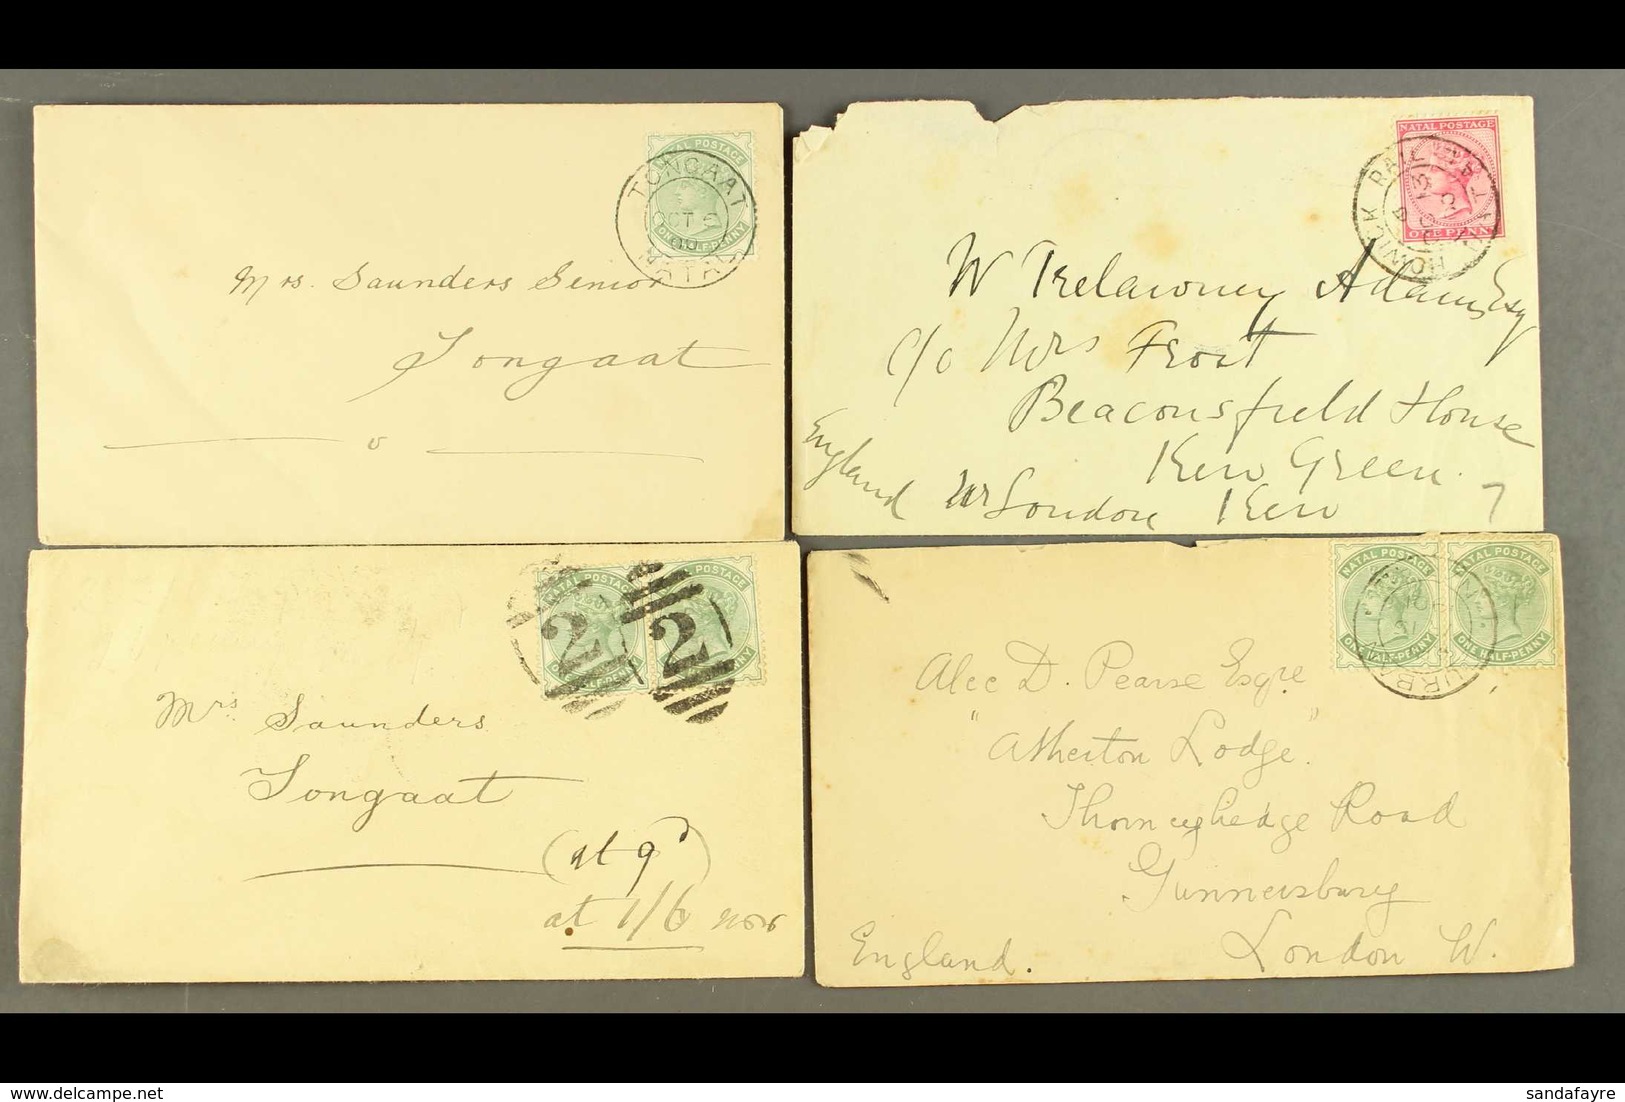 NATAL POSTAGE
ONE HALF-PENNY
TONGAAT
OCT 6
NATAL
Mrs. Saunders Senior
Tongaat
NATAL POSTAGE
ONE PENNY
HOWICK RAIL
W Trelawney Adams, Esq
c/o Mrs Frost
Beaconsfield House
Kew Green
England nr London Kew 7
NATAL POSTAGE
POSTAGE
2 2
Mrs Saunders
Tongaat
(at 9d)
at 1/6 now
NATAL POSTAGE NATAL POSTAGE
ONE HALF-PENNY ONE HALF-PENNY
Alec D. Pearse Esqre
"Atherton Lodge"
Thorneyhedge Road
Gunnersbury
England. London W.
sandafayre